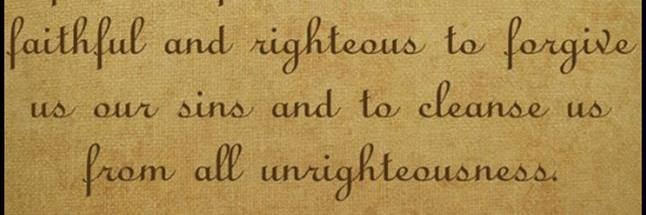 faithful and righteous to forgive
us our sins and to cleanse us
from all unrighteousness.